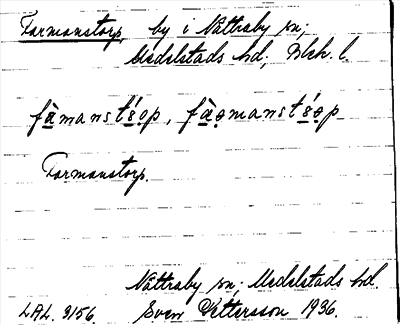 Farmanstorp, by i Nättraby sn;
Medelstads hd; Blek. l.
fà̱manst8̱́ǫp, fà̱ǫmanst8̱́ǫp
Farmanstorp.
Nättraby sn; Medelstads hd
LAL. 3156. Sven Pettersson 1936.